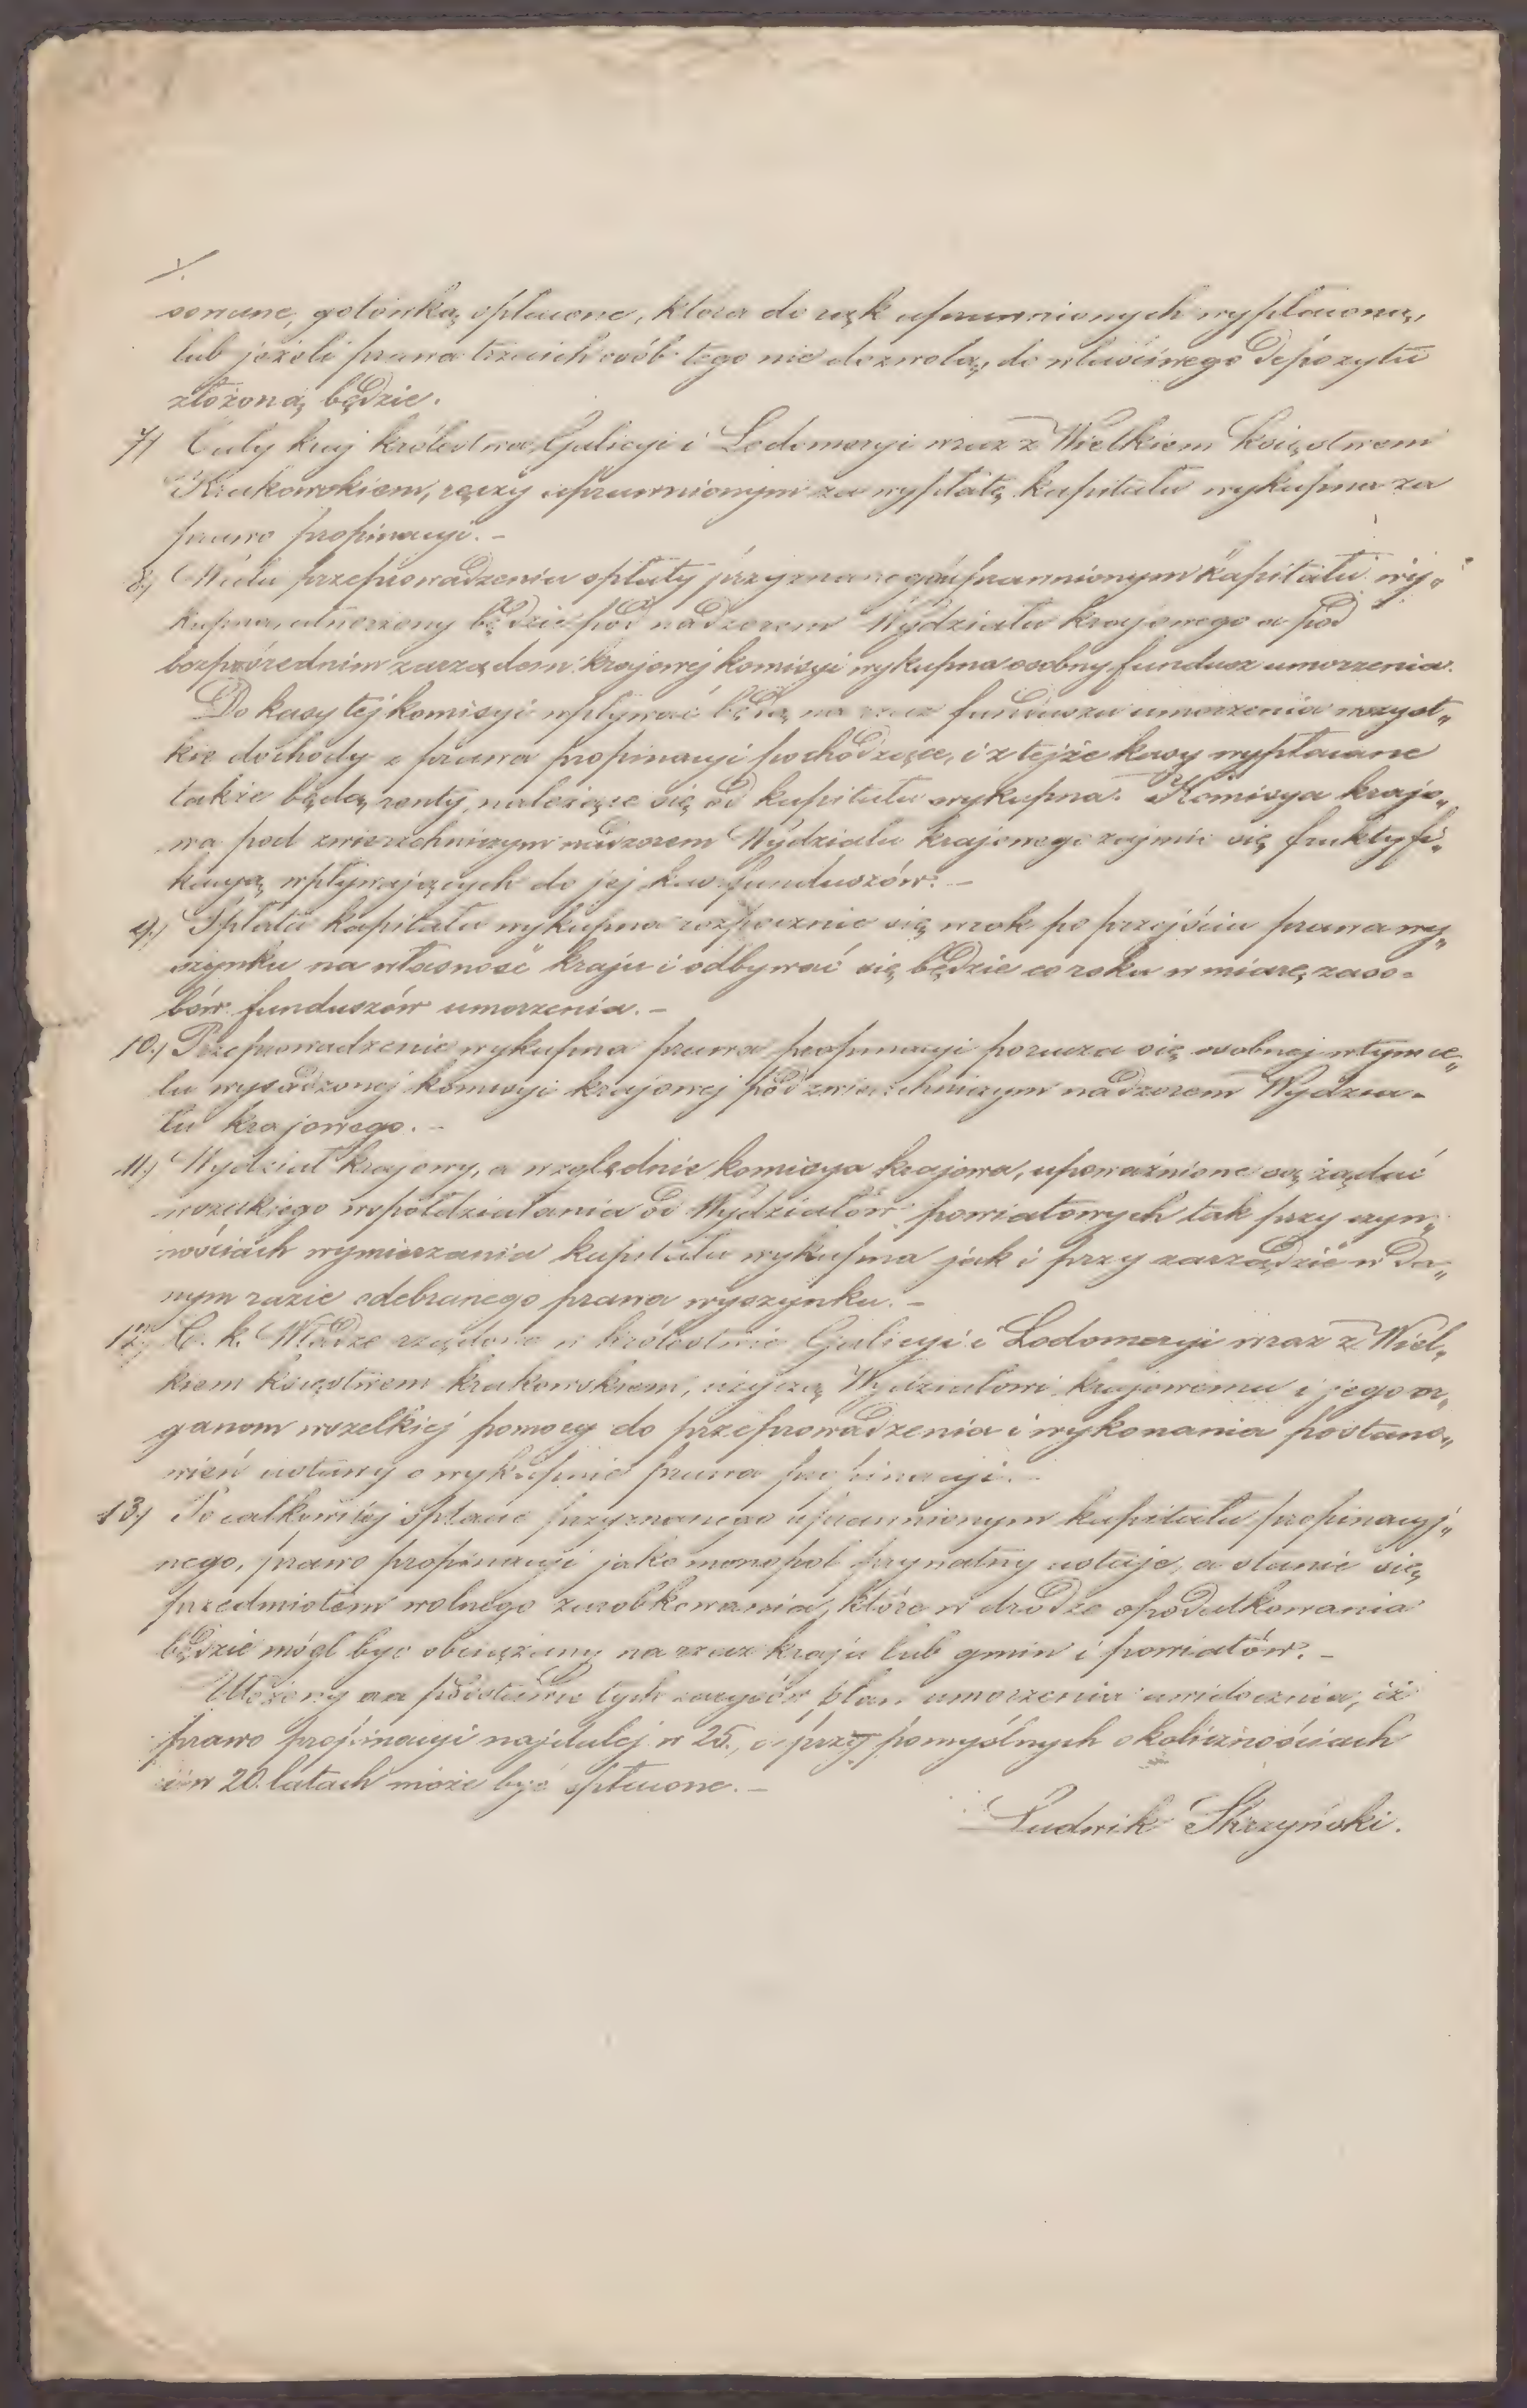 sowane, gotówką spłacone, która do rąk uprawnionych wypłaconą,
lub jeżeli prawa trzecich osób tego nie dozwolą, do właściwego depozytu
złożoną będzie.
7) Cały kraj królestwa Galicyi i Lodomeryi wraz z Wielkiem Księstwem
Krakowskiem, ręczy uprawnionym za wypłatę kapitału wykupna za
prawo propinacyi. –
8.) W celu przeprowadzenia spłaty przyznanego uprawnionym kapitału wy„
kupna, utworzony będzie pod nadzorem Wydziału krajowego a pod
bezpośrednim zarządem krajowej komisyi wykupna osobny fundusz umorzenia.
Do kasy tej komisyi wpływać będą na rzecz funduszu umorzenia wszyst„
kie dochody z prawa propinacyi pochodzące, i z tejże kasy wypłacane
także będą renty, należące się od kapitału wykupna. Komisya krajo„
wa pod zwierzchniczym nadzorem Wydziału krajowego zajmie się fruktyfi„
kacyą wpływających do jej kas funduszów. –
9.) Spłata kapitału wykupna rozpocznie się w rok po przejściu prawa wy„
szynku na własność kraju i odbywać się będzie co roku w miarę zaso-
bów funduszów umorzenia. –
10.) Przeprowadzenie wykupna prawa propinacyi porucza się osobnej w tym ce„
lu wysadzonej komisyi krajowej pod zwierzchniczym nadzorem Wydzia-
łu krajowego. –
11.) Wydział krajowy, a względnie komisya krajowa, upoważnione są żądać
wszelkiego współdziałania od Wydziałów powiatowych tak przy czyn„
nościach wymierzania kapitału wykupna jak i przy zarządzie w da„
nym razie odebranego prawa wyszynku. –
12.) C. k. Władze rządowe w królestwie Galicyi i Lodomeryi wraz z Wiel„
kiem księstwem krakowskiem, użyczą Wydziałowi krajowemu i jego or„
ganom wszelkiej pomocy do przeprowadzenia i wykonania postano„
wień ustawy o wykupnie prawa propinacyi. –
13) Po całkowitej spłacie przyznanego uprawnionym kapitału propinacyj„
nego, prawo propinacyi jako monopol prywatny ustaje, a stanie się
przedmiotem wolnego zarobkowania, które w drodze opodatkowania
będzie mógł być obciążany na rzecz kraju lub gmin i powiatów. –
Ułożony na podstawie tych zarysów plan umorzenia uwidocznia, iż
prawo propinacyi najdalej w 25., a przy pomyślnych okolicznościach
i w 20. latach może być spłacone. –
Ludwik Skrzyński.